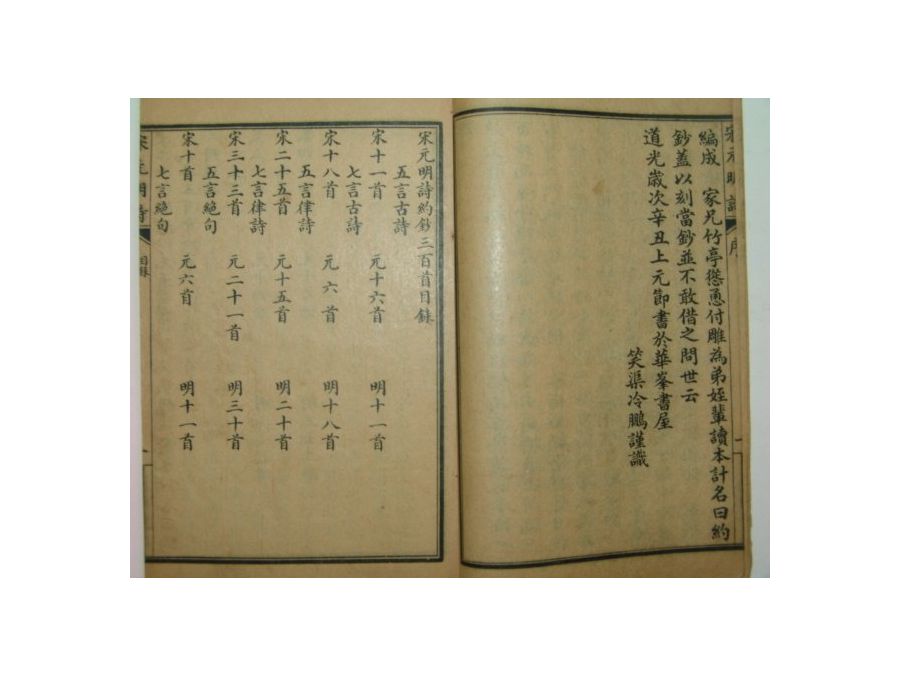 宋元明詩
序
編成　家兄竹亭慫恿付雕為弟姪輩讀本計名曰約
鈔蓋以刻當鈔並不敢借之問世云
道光歲次辛丑上元節書於華峯書屋
笑渠冷鵬謹識
宋元明詩約鈔三百首目錄
五言古詩
宋十一首　元十六首　明十一首
七言古詩
宋十八首　元六首　明十八首
五言律詩
宋二十五首　元十五首　明二十首
七言律詩
宋三十三首　元二十一首　明三十首
五言絕句
宋十首　元六首　明十一首
七言絕句
宋元明詩
目錄